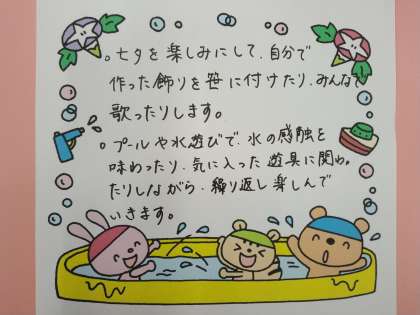 。七夕を楽しみにして、自分で
作った飾りを笹に付けたり、みんなで
歌ったりします。
。プールや水遊びで、水の感触を
味わったり、気に入った遊具に関わっ
たりしながら、繰り返し楽しんで
いきます。